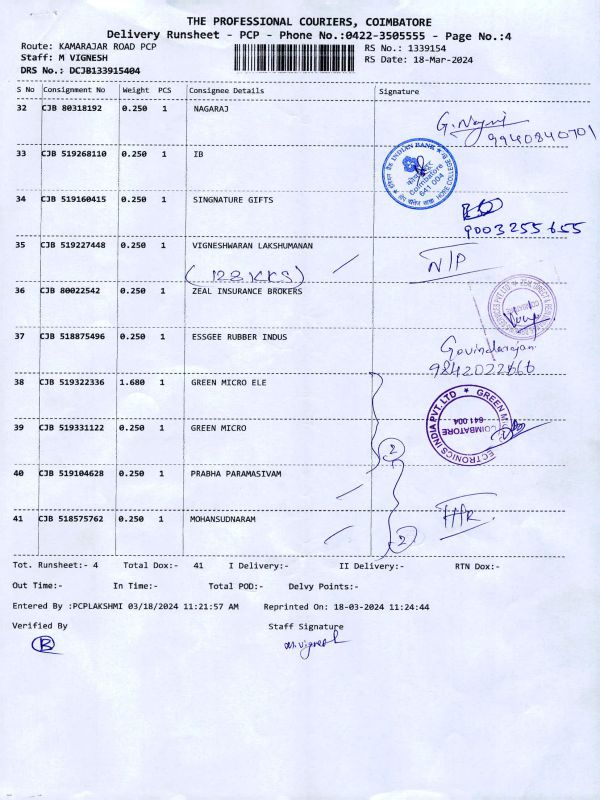 THE PROFESSIONAL COURIERS, COIMBATORE
Delivery Runsheet - PCP - Phone No.:0422-3505555 - Page No.:4
Route: KAMARAJAR ROAD PCP RS No.: 1339154
Staff: M VIGNESH RS Date: 18-Mar-2024
DRS No.: DCJB133915404
S No Consignment No Weight PCS Consignee Details Signature
32 CJB 80318192 0.250 1 NAGARAJ
9940840701
33 CJB 519268110 0.250 1 IB
INDIAN BANK
Coimbatore
641 004
34 CJB 519160415 0.250 1 SINGNATURE GIFTS
9003255655
35 CJB 519227448 0.250 1 VIGNESHWARAN LAKSHUMANAN
N/P
36 CJB 80022542 0.250 1 ZEAL INSURANCE BROKERS
37 CJB 518875496 0.250 1 ESSGEE RUBBER INDUS
Govindarajan
38 CJB 519322336 1.680 1 GREEN MICRO ELE
39 CJB 519331122 0.250 1 GREEN MICRO
COIMBATORE
641 004
2
40 CJB 519104628 0.250 1 PRABHA PARAMASIVAM
41 CJB 518575762 0.250 1 MOHANSUDNARAM
2
Tot. Runsheet:- 4 Total Dox:- 41 I Delivery:- II Delivery:- RTN Dox:-
Out Time:- In Time:- Total POD:- Delvy Points:-
Entered By :PCPLAKSHMI 03/18/2024 11:21:57 AM Reprinted On: 18-03-2024 11:24:44
Verified By Staff Signature
M. Vignesh